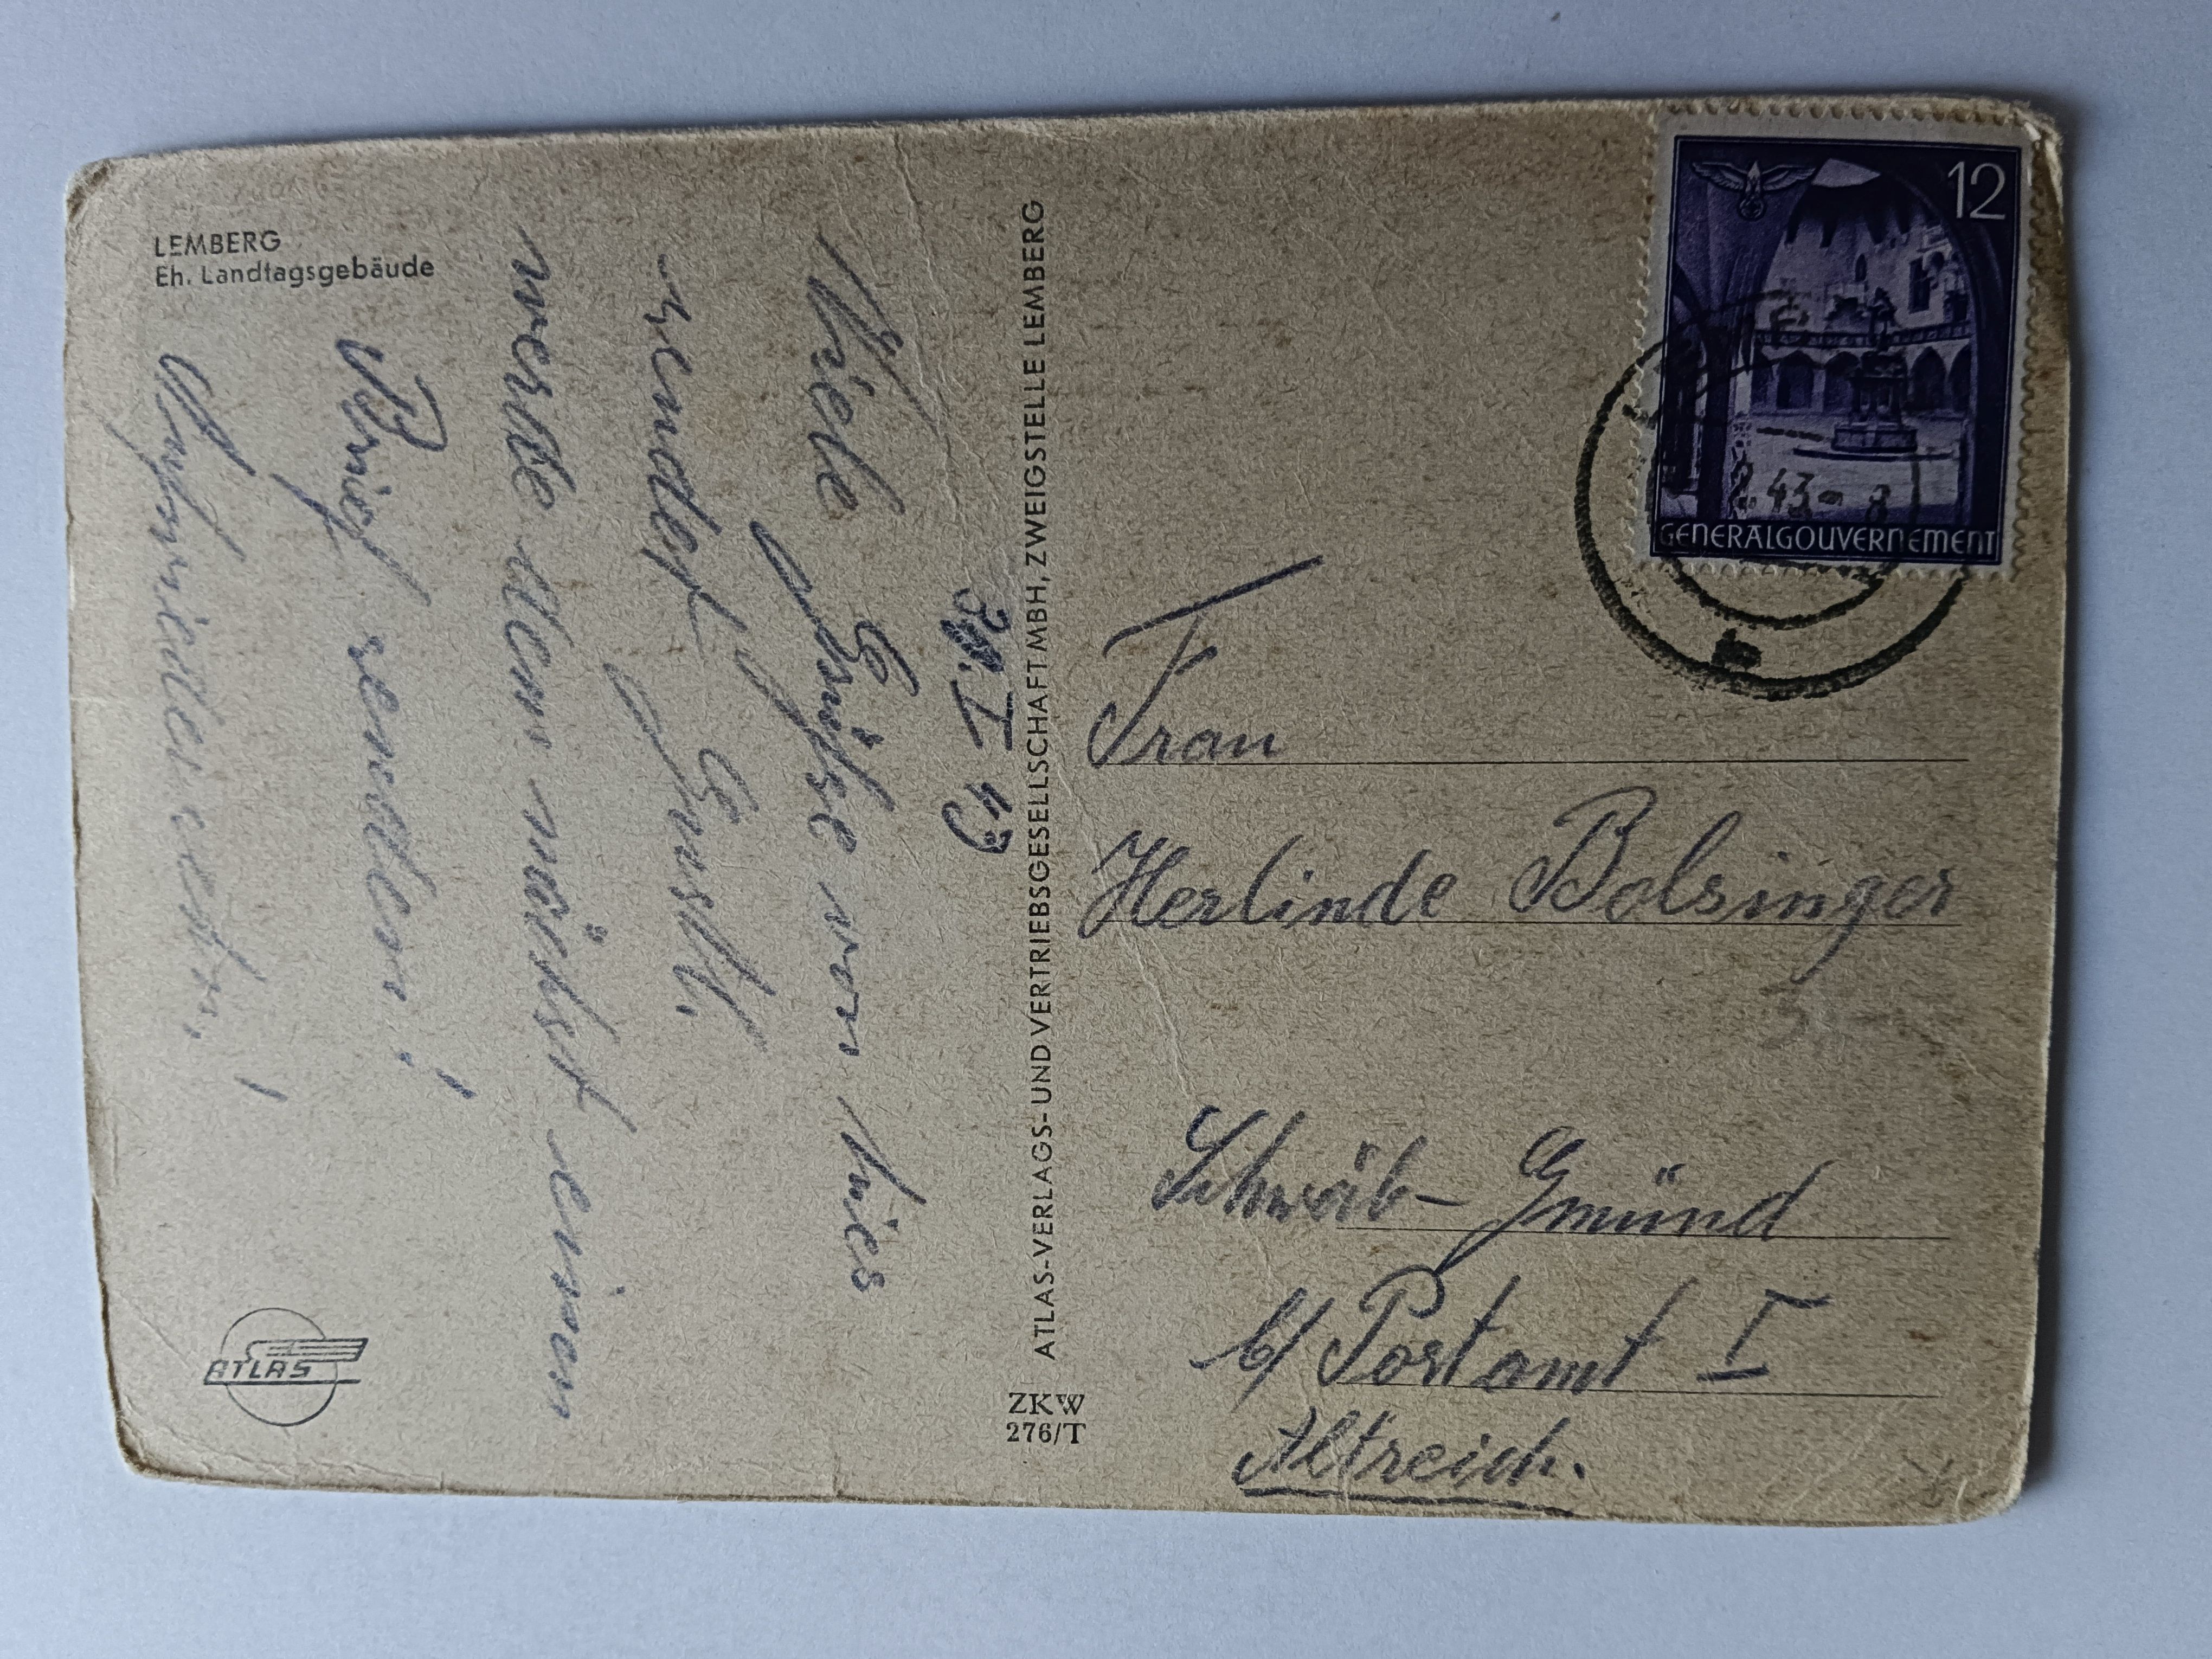 LEMBERG
Eh. Landtagsgebäude
30. I. 43
Viele Grüße von hies
sendet Gustl.
werde dem näcst einen
Brief senden!
Aufwiedersehn,!
ATLAS
ATLAS-VERLAGS- UND VERTRIEBSGESELLSCHAFT MBH, ZWEIGSTELLE LEMBERG
ZKW
276/T
12
43
8
GENERALGOUVERNEMENT
b
Frau
Herlinde Bolsinger
Schwäb- Gmünd
b/ Postamt I
Altreich.